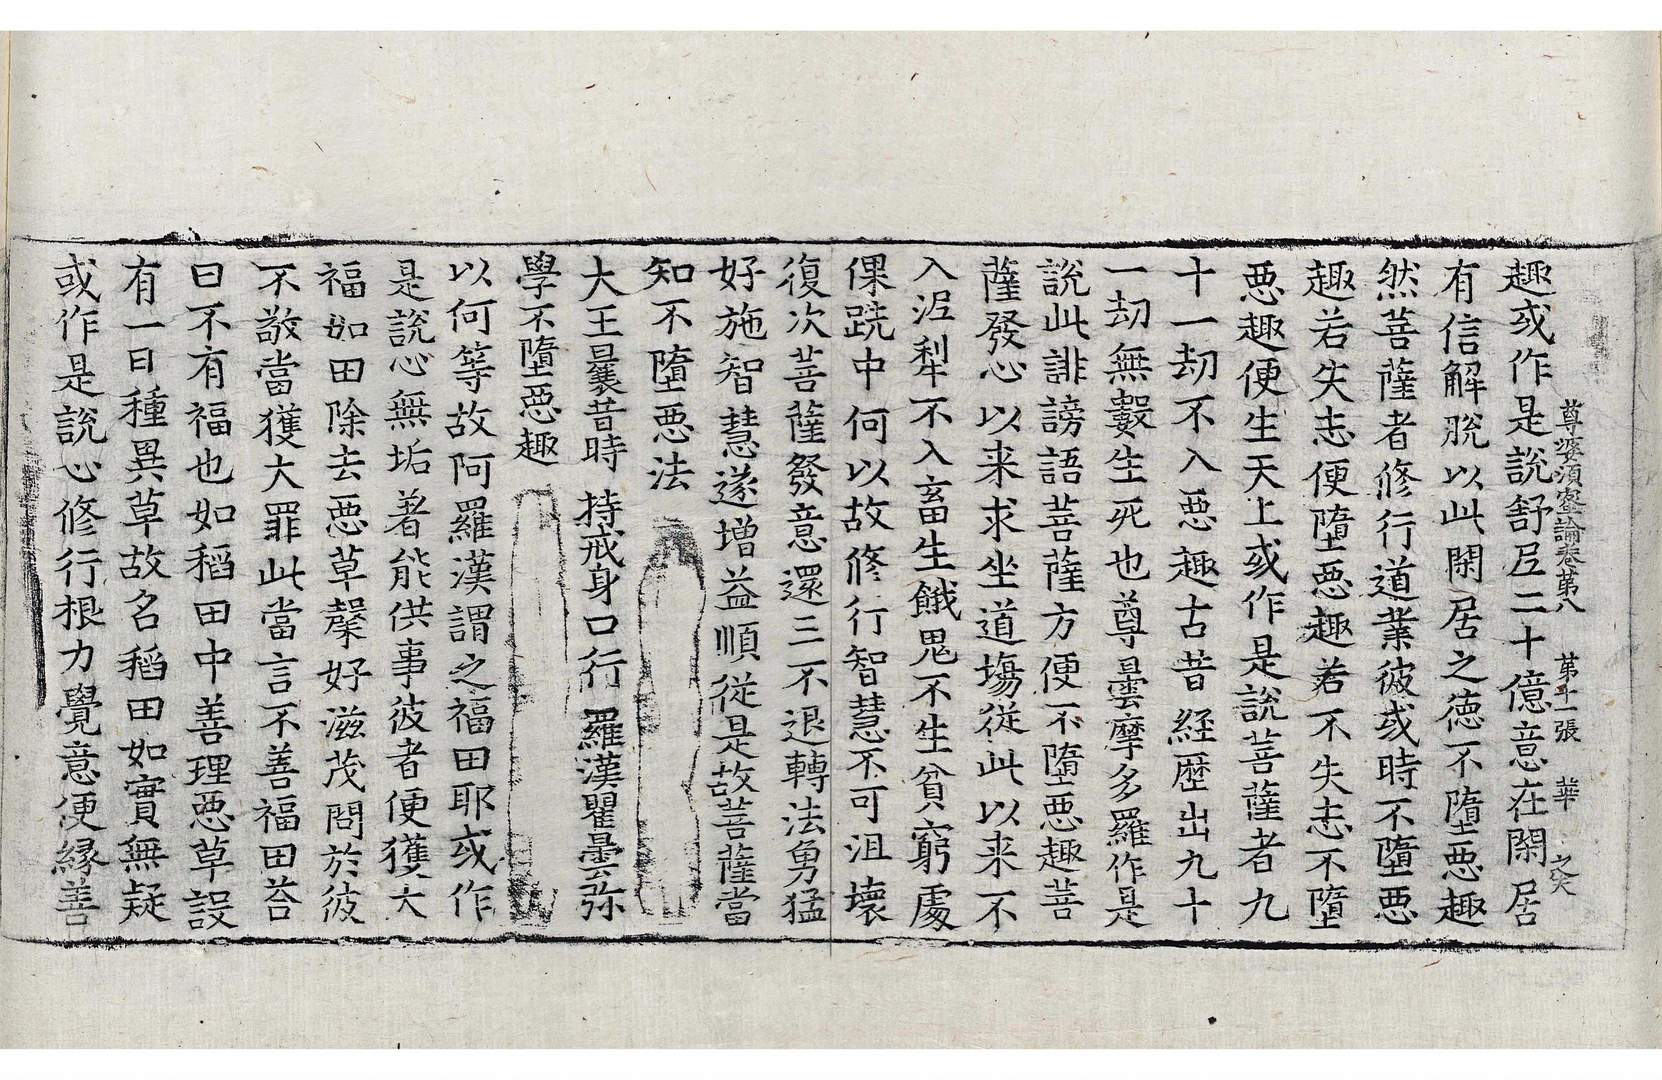 尊婆須蜜論卷第八 第十一張 華
趣或作是說舒𡰱二十億意在閑居
有信解脫以此閑居之德不墮惡趣
然菩薩者修行道業彼或時不墮惡
趣若失志便墮惡趣若不失志不墮
惡趣便生天上或作是說菩薩者九
十一劫不入惡趣古昔經歷出九十
一劫無數生死也尊曇摩多羅作是
說此誹謗語菩薩方便不墮惡趣菩
薩發心以来求坐道場從此以来不
入泥犁不入畜生餓鬼不生貧窮處
倮跣中何以故修行智慧不可沮壞
復次菩薩發意還三不退轉法勇猛
好施智慧遂增益順從是故菩薩當
知不墮惡法
大王曩昔時 持戒身口行 羅漢瞿曇弥
學不墮惡趣
以何等故阿羅漢謂之福田耶或作
是說心無垢著能供事彼者便獲大
福如田除去惡草馨好滋茂問於彼
不敬當獲大罪此當言不善福田荅
曰不有福也如稻田中善理惡草設
有一日種異草故名稻田如實無疑
或作是說心修行根力覺意便緣善